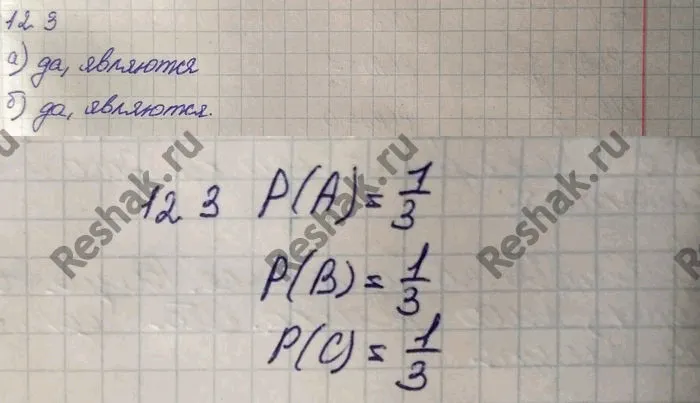 12.3
а) да, являются
б) да, являются.
12.3 P(A) = 1/3
P(B) = 1/3
P(C) = 1/3
Reshak.ru
Reshak.ru
Reshak.ru
Reshak.ru